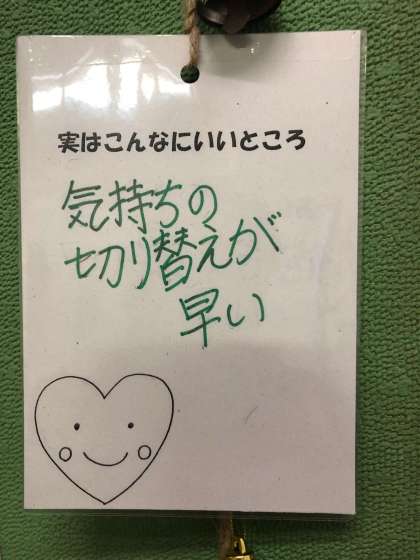 実はこんなにいいところ
気持ちの
切り替えが
早い